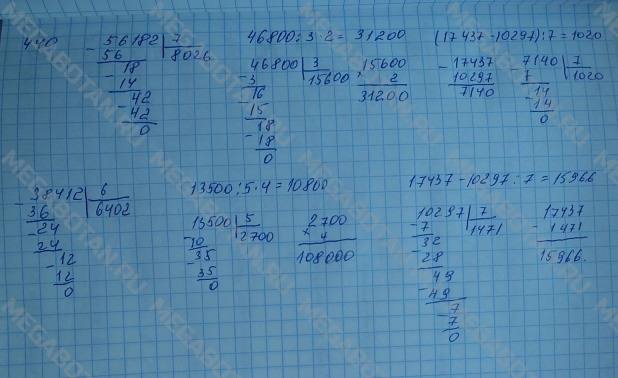 440
56182 | 7
- 56 8026
18
- 14
42
- 42
0
46800 : 3 · 2 = 31200
46800 | 3
- 3 15600
16
- 15
18
- 18
0
15600
2
31200
(17437 - 10297) : 7 = 1020
- 17437
10297
7140
7140 | 7
- 7 1020
14
- 14
0
38412 | 6
- 36 6402
24
- 24
12
- 12
0
13500 : 5 · 4 = 10800
13500 | 5
- 10 2700
35
- 35
0
2700
× 4
108000
17437 - 10297 : 7 = 15966
10297 | 7
- 7 1471
32
- 28
49
- 49
7
- 7
0
17437
- 1471
15966.
MEGABOTAN.RU